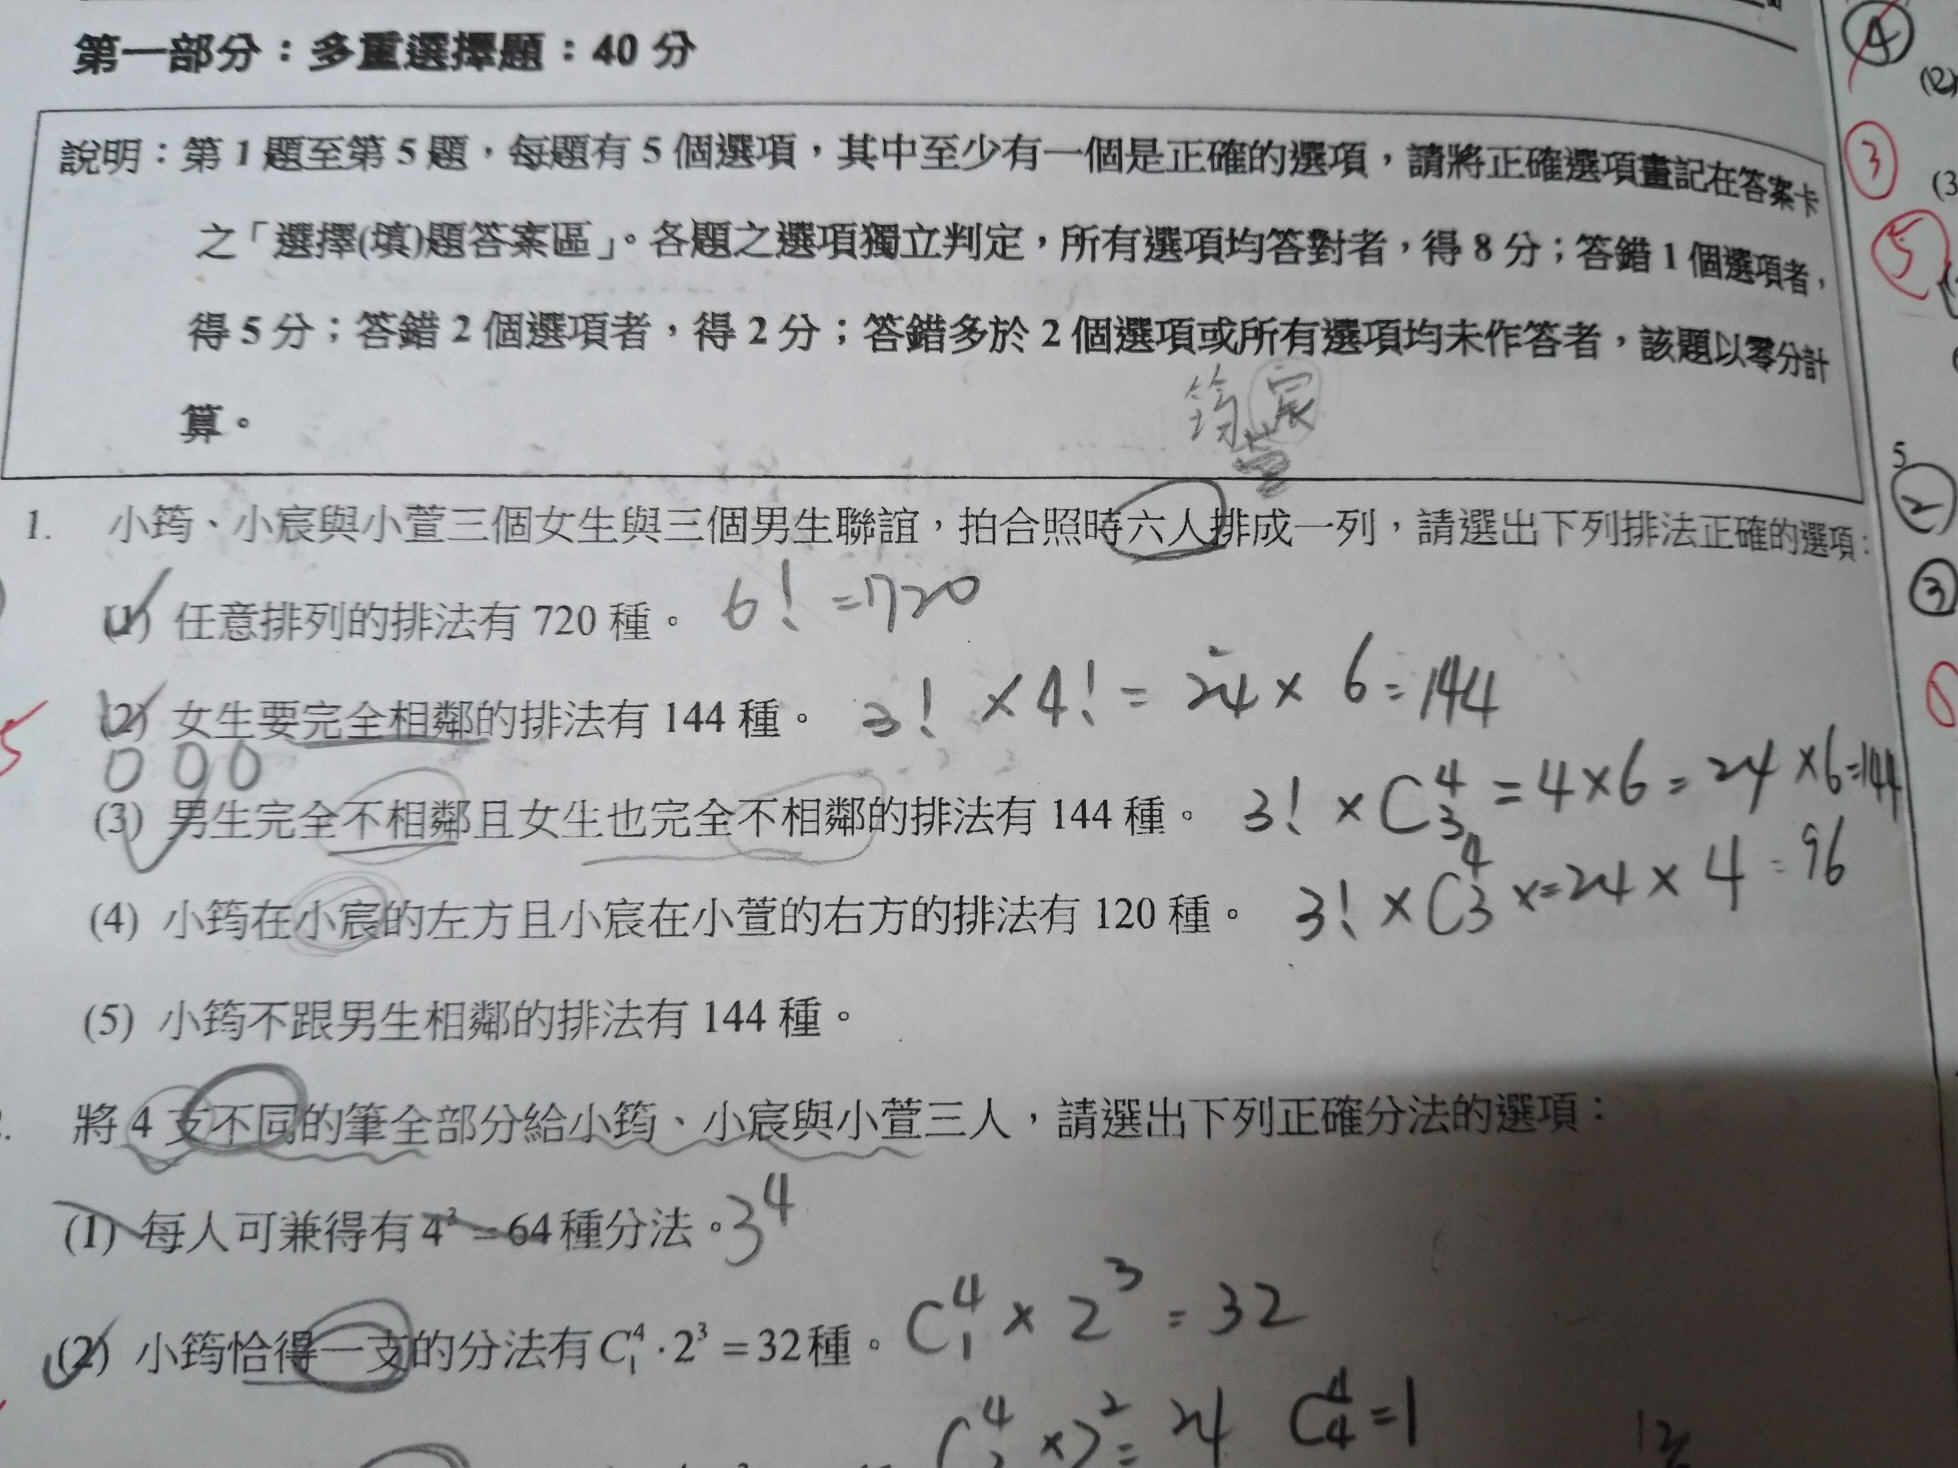 第一部分：多重選擇題：40 分
說明：第 1 題至第 5 題，每題有 5 個選項，其中至少有一個是正確的選項，請將正確選項畫記在答案卡
之「選擇(填)題答案區」。各題之選項獨立判定，所有選項均答對者，得 8 分；答錯 1 個選項者，
得 5 分；答錯 2 個選項者，得 2 分；答錯多於 2 個選項或所有選項均未作答者，該題以零分計
算。
筠 宸
萱
1. 小筠、小宸與小萱三個女生與三個男生聯誼，拍合照時六人排成一列，請選出下列排法正確的選項：
(1) 任意排列的排法有 720 種。 6! =720
(2) 女生要完全相鄰的排法有 144 種。 3! ×4! = 24 × 6 = 144
(3) 男生完全不相鄰且女生也完全不相鄰的排法有 144 種。 3! × C⁴₃ = 4×6 = 24 ×6=144
(4) 小筠在小宸的左方且小宸在小萱的右方的排法有 120 種。 3! × C⁴₃ ×=24 × 4 = 96
(5) 小筠不跟男生相鄰的排法有 144 種。
將 4 支不同的筆全部分給小筠、小宸與小萱三人，請選出下列正確分法的選項：
(1) 每人可兼得有 4³ = 64 種分法。 3⁴
(2) 小筠恰得一支的分法有 C⁴₁ · 2³ = 32 種。 C⁴₁ × 2³ = 32
×2² = 24 C⁴₄ = 1
4
(2)
3
5
5
2
3